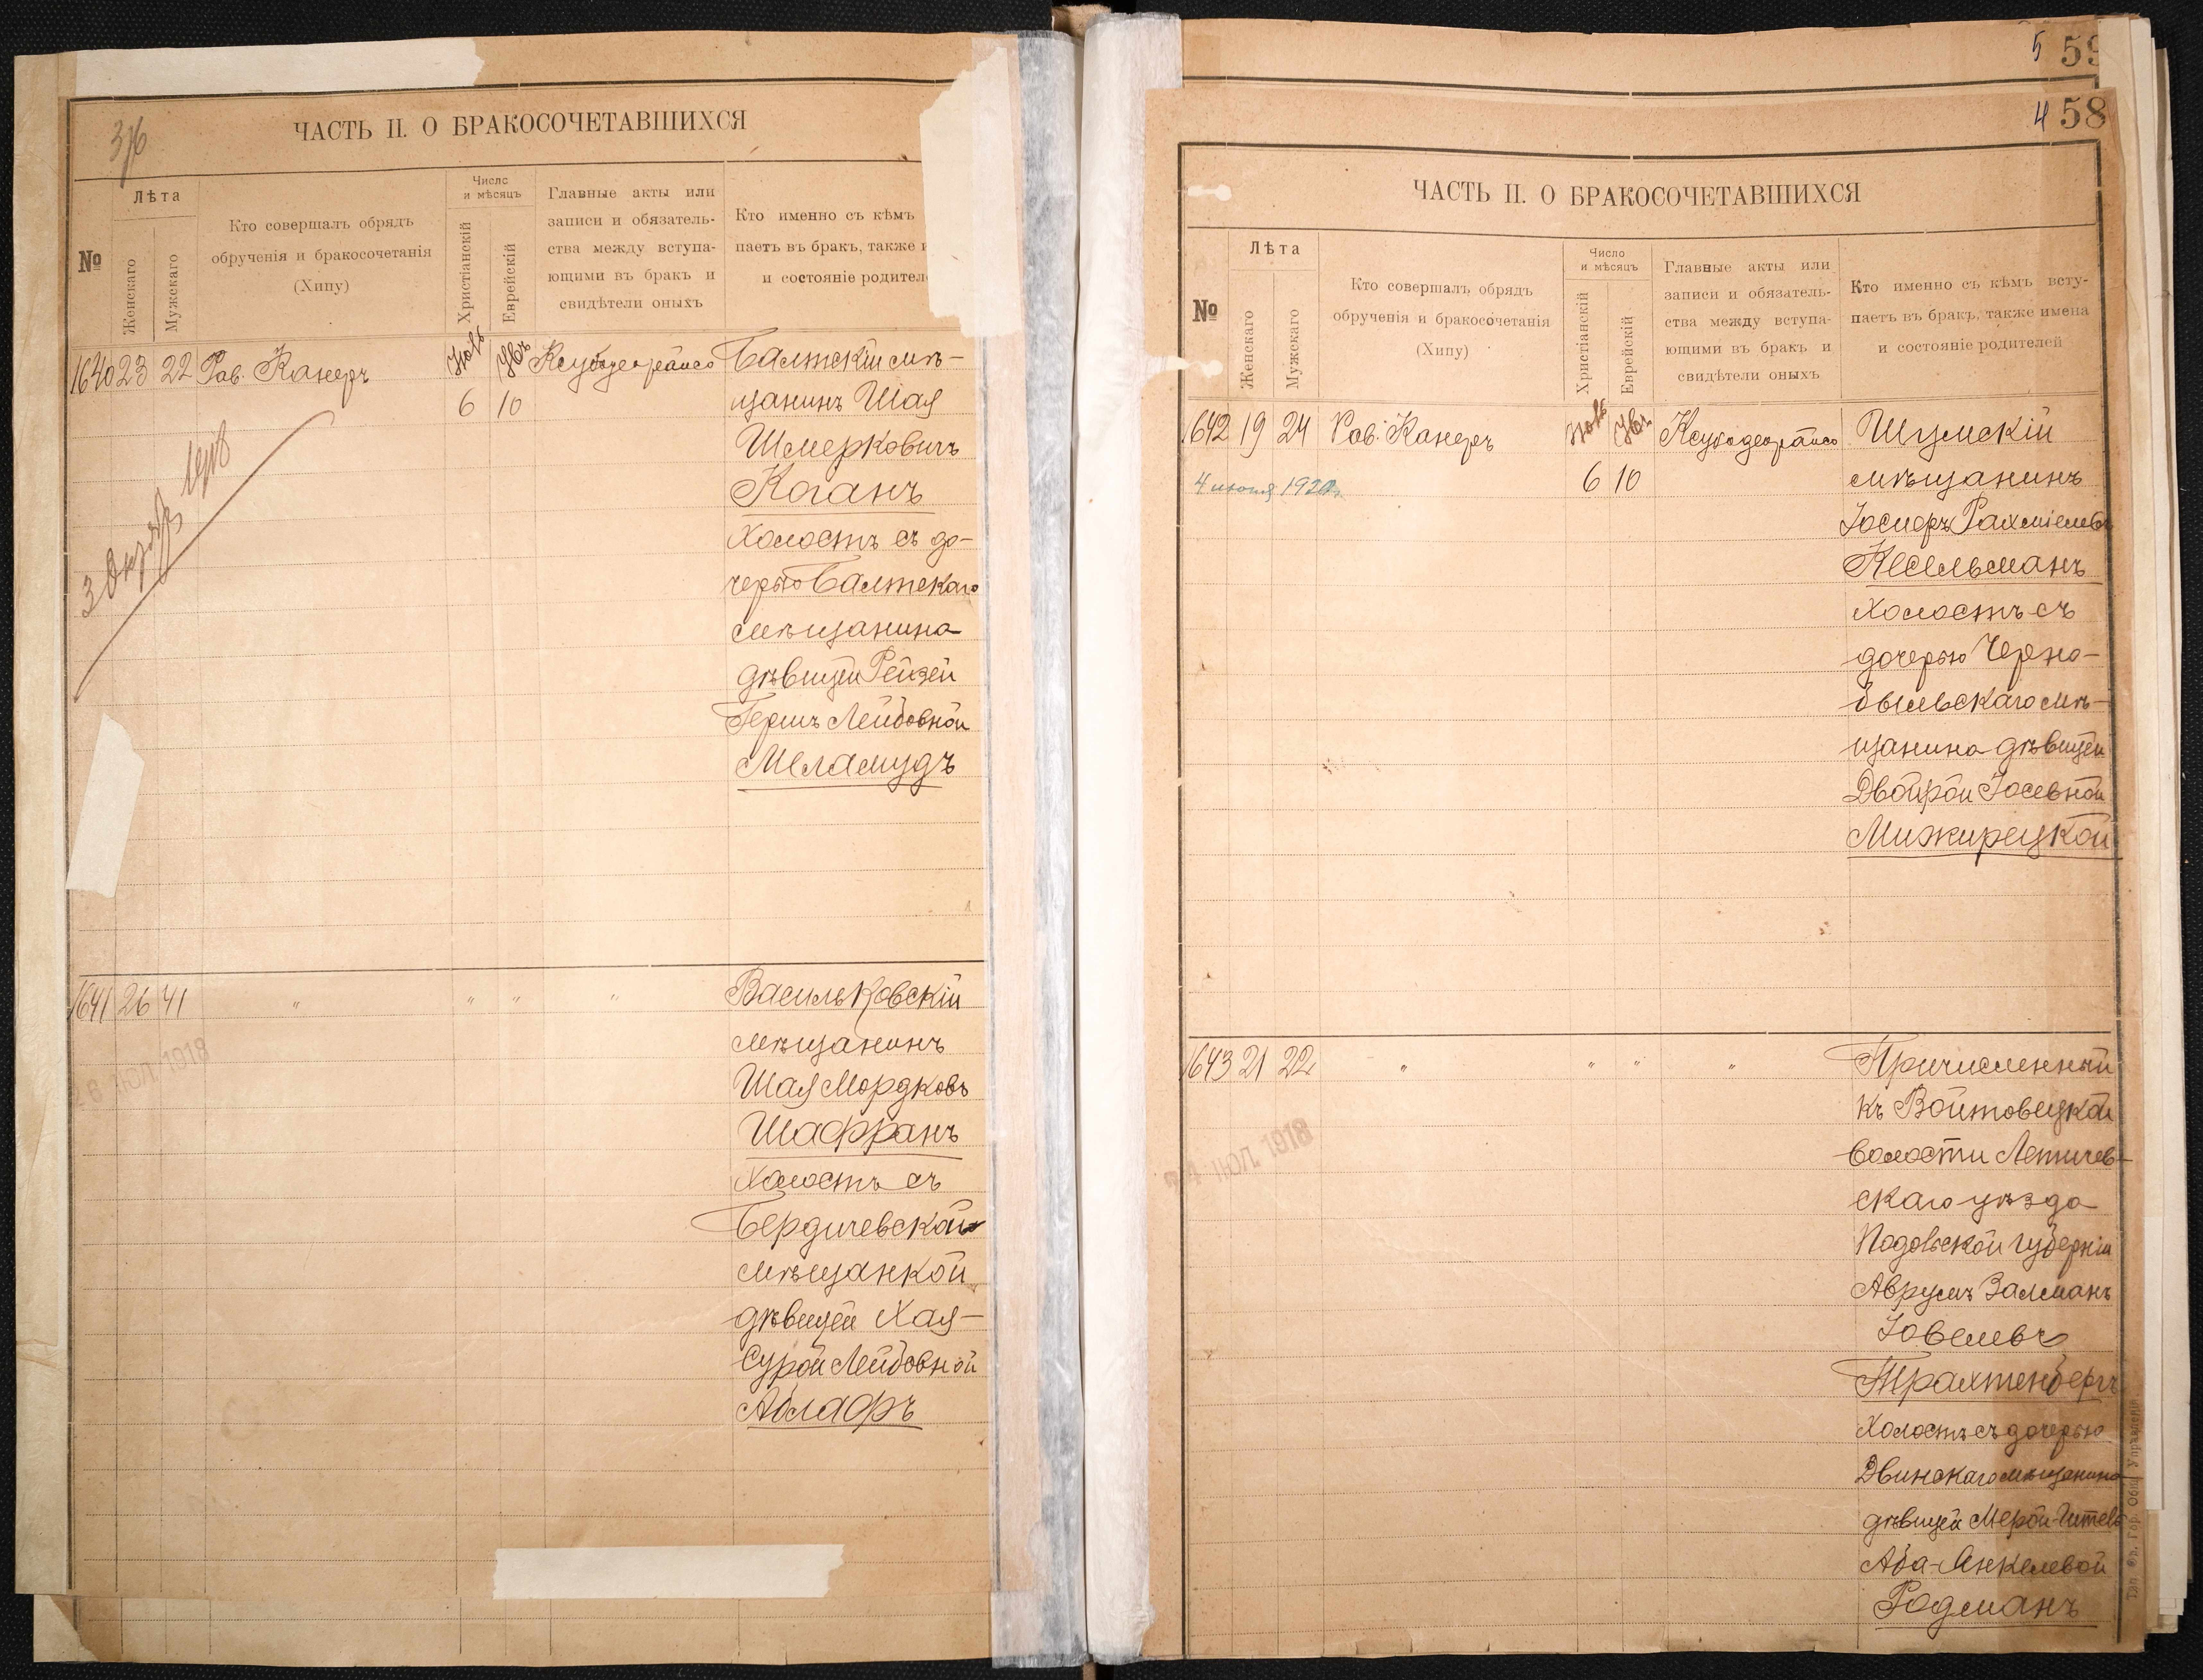 376
ЧАСТЬ II. О БРАКОСОЧЕТАВШИХСЯ
№
Лѣта
Женскаго
Мужскаго
Кто совершалъ обрядъ
обрученія и бракосочетанія
(Хипу)
Число
и мѣсяцъ
Христіанскій
Еврейскій
Главные акты или
записи и обязатель-
ства между вступа-
ющими въ бракъ и
свидѣтели оныхъ
Кто именно съ кѣмъ
паетъ въ бракъ, также и
и состояніе родител
1640 23 22 Рав. Канеръ
6 10
Балтскій мѣ-
щанинъ Шая
Шмерковичъ
Коганъ
Холостъ съ до-
черью Балтскаго
мѣщанина
дѣвицей Рейзей
Гершъ Лейбовной
Меламудъ
1641 26 41 " " " "
Васильковскій
мѣщанинъ
Шая Мордковъ
Шафранъ
Холостъ съ
Бердичевской
мѣщанкой
дѣвицей Хая-
Сурой Лейбовной
Аблафъ
26 ІЮЛ 1918
5 59
4 58
ЧАСТЬ II. О БРАКОСОЧЕТАВШИХСЯ
№
Лѣта
Женскаго
Мужскаго
Кто совершалъ обрядъ
обрученія и бракосочетанія
(Хипу)
Число
и мѣсяцъ
Христіанскій
Еврейскій
Главные акты или
записи и обязатель-
ства между вступа-
ющими въ бракъ и
свидѣтели оныхъ
Кто именно съ кѣмъ всту-
паетъ въ бракъ, также имена
и состояніе родителей
1642 19 24 Рав. Канеръ
6 10
Шумскій
мѣщанинъ
Іосифъ Рахміелевъ
Кесельманъ
Холостъ съ
дочерью Черно-
быльскаго мѣ-
щанина дѣвицей
Двойрой Іосевной
Мижирецкой
1643 21 22 " " " "
Причисленный
къ Войтовецкой
волости Летичев-
скаго уѣзда
Подольской губерніи
Аврумъ Залманъ
Іовелевъ
Трахтенбергъ
Холостъ съ дочерью
Двинскаго мѣщанина
дѣвицей Мерой-Гителъ
Аба-Янкелевой
Родманъ
ІЮЛ. 1918